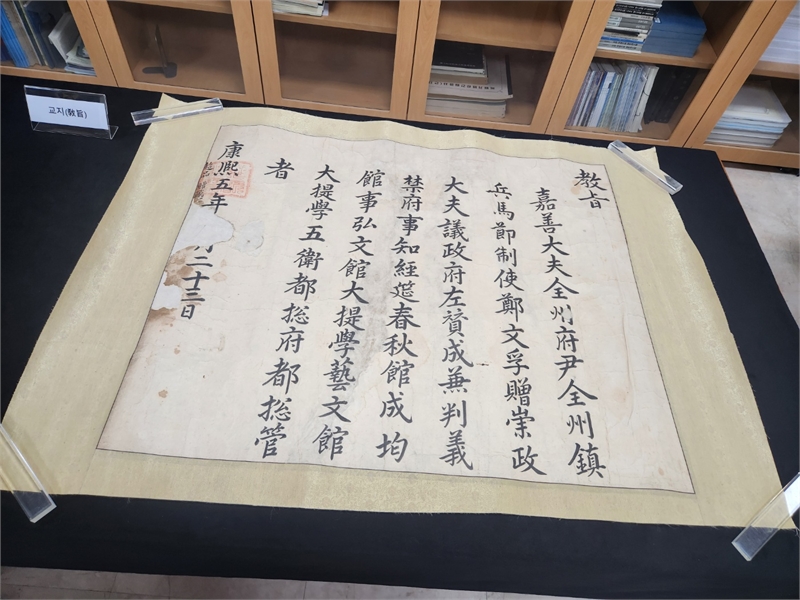 교지(敎旨)
教旨
嘉善大夫全州府尹全州鎮
兵馬節制使鄭文孚贈崇政
大夫議政府左贊成兼判義
禁府事知經筵春秋館成均
館事弘文館大提學藝文館
大提學五衛都摠府都摠管
者
康熙五年 月二十三日